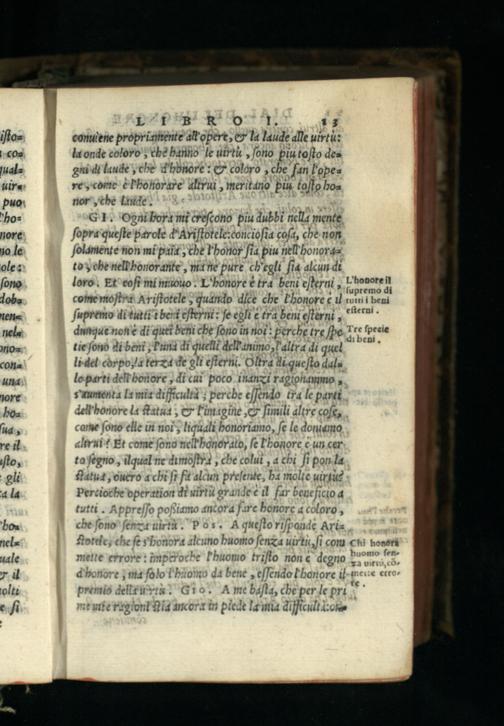 LIBRO I. 13
conuiene propriamente all'opere, & la laude alle uirtù:
la onde coloro, che hanno le uirtù, sono piu tosto de=
gni di laude, che d'honore: & coloro, che fan l'ope=
re, come l'honorare altrui, meritano piu tosto ho=
nor, che laude.
GI. Ogni hora mi crescono piu dubbi nella mente
sopra queste parole d'Aristotele: conciosia cosa, che non
solamente non mi paia, che l'honor sia piu nell'honora=
to, che nell'honorante, ma ne pure ch'egli sia alcun di
loro. Et cosi mi muouo. L'honore è tra beni esterni,
come mostra Aristotele, quando dice che l'honore è il
supremo di tutti i beni esterni: se egli è tra beni esterni,
dunque non è di quei beni che sono in noi: perche tre spe
tie sono di beni, l'una di quelli dell'animo, l'altra di quel
li del corpo, la terza de gli esterni. Oltra di questo dal=
le parti dell'honore, di cui poco inanzi ragionammo,
s'aumenta la mia difficultà; perche essendo tra le parti
dell'honore la statua, & l'imagine, & simili altre cose,
come sono elle in noi, liquali honoriamo, se le doniamo
altrui? Et come sono nell'honorato, se l'honore è un cer
to segno, ilqual ne dimostra, che colui, a chi si pon la
statua, ouero a chi si fa alcun presente, ha molte uirtù?
Percioche operation di uirtù grande è il far beneficio a
tutti. Appresso possiamo ancora fare honore a coloro,
che sono senza uirtù. POS. A questo risponde Ari=
stotele, che se s'honora alcuno huomo senza uirtù, si com
mette errore: imperoche l'huomo tristo non è degno
d'honore, ma solo l'huomo da bene, essendo l'honore il
premio della uirtù. GIO. A me basta, che per le pri
me mie ragioni stia ancora in piede la mia difficultà: con=
L'honore il
supremo di
tutti i beni
esterni.
Tre spezie
di beni.
Chi honora
huomo sen-
za uirtù, cō-
mette erro-
re.